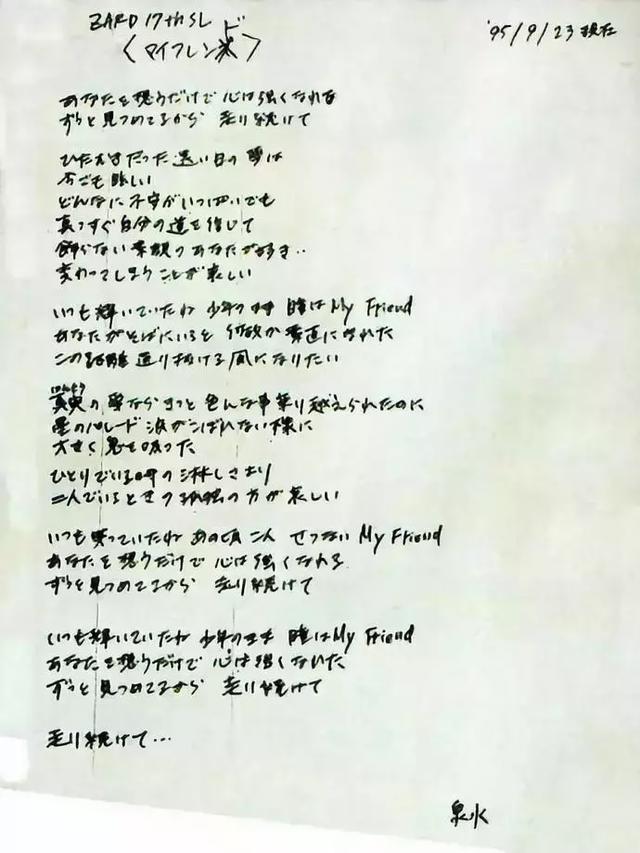 ZARD 17th SL
'95/9/23現在
〈マイフレンド〉
あなたを想うだけで 心は強くなれる
ずっと見つめてるから 走り続けて
ひたむきだった遠い日の夢は
今でも眩しい
どんなに不安がいっぱいでも
真っすぐ自分の道を信じて
飾らない素顔のあなたが好き‥
変わってしまうことが哀しい
いつも輝いていたね 少年のまま 瞳はMy Friend
あなたがそばにいると 何故か 素直になれた
この距離 通り抜ける 風になりたい
真実の夢ならきっと 色んな事乗り越えられたのに
星のパレード 涙がこぼれない様に
大きく息を吸った
ひとりでいる時の淋しさより
二人でいるときの孤独の方が哀しい
いつも笑っていたね あの頃 二人 せつない My Friend
あなたを想うだけで 心は強くなれる
ずっと見つめてるから 走り続けて
いつも輝いていたね 少年のまま 瞳はMy Friend
あなたを想うだけで 心は強くなれた
ずっと見つめてるから 走り続けて
走り続けて…
泉水